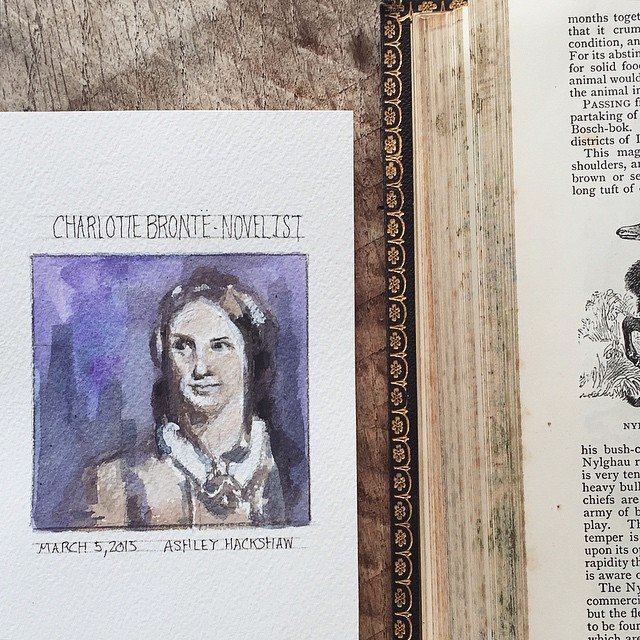 CHARLOTTE BRONTË - NOVELIST
MARCH 5, 2015 ASHLEY HACKSHAW
months toget
that it crum
condition, an
For its abstin
for solid foo
animal would
the animal in
PASSING f
partaking of
Bosch-bok.
districts of I
This mag
shoulders, a
brown or se
long tuft of
NY
his bush-c
Nylghau r
is very ten
heavy bull
chiefs are
army of b
play. Th
temper is
upon its o
rapidity th
is aware o
The Ny
commerci
but the fle
to be foun
which are